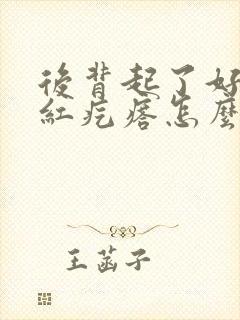 後背起了好
紅疙瘩怎麼
王菡子